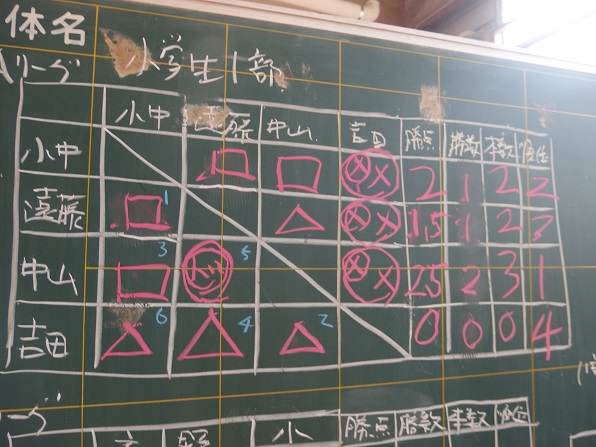 体名
Aリーグ 小学生1部
小中 遠藤 中山 吉田 勝点 勝数 本数 順位
小中 2 1 2 2
遠藤 1 1.5 1 2 3
中山 3 5 2.5 2 3 1
吉田 6 4 2 0 0 0 4
リーグ
勝点 勝数 本数 順位
小